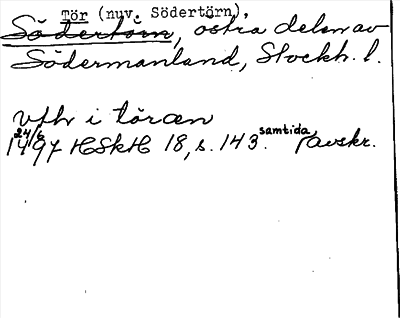 Tör (nuv. Södertörn),
Södertörn, östra delen av
Södermanland, Stockh. l.
vthr i töræn
24/6 1497 HSkH 18, s. 143. samtida avskr.